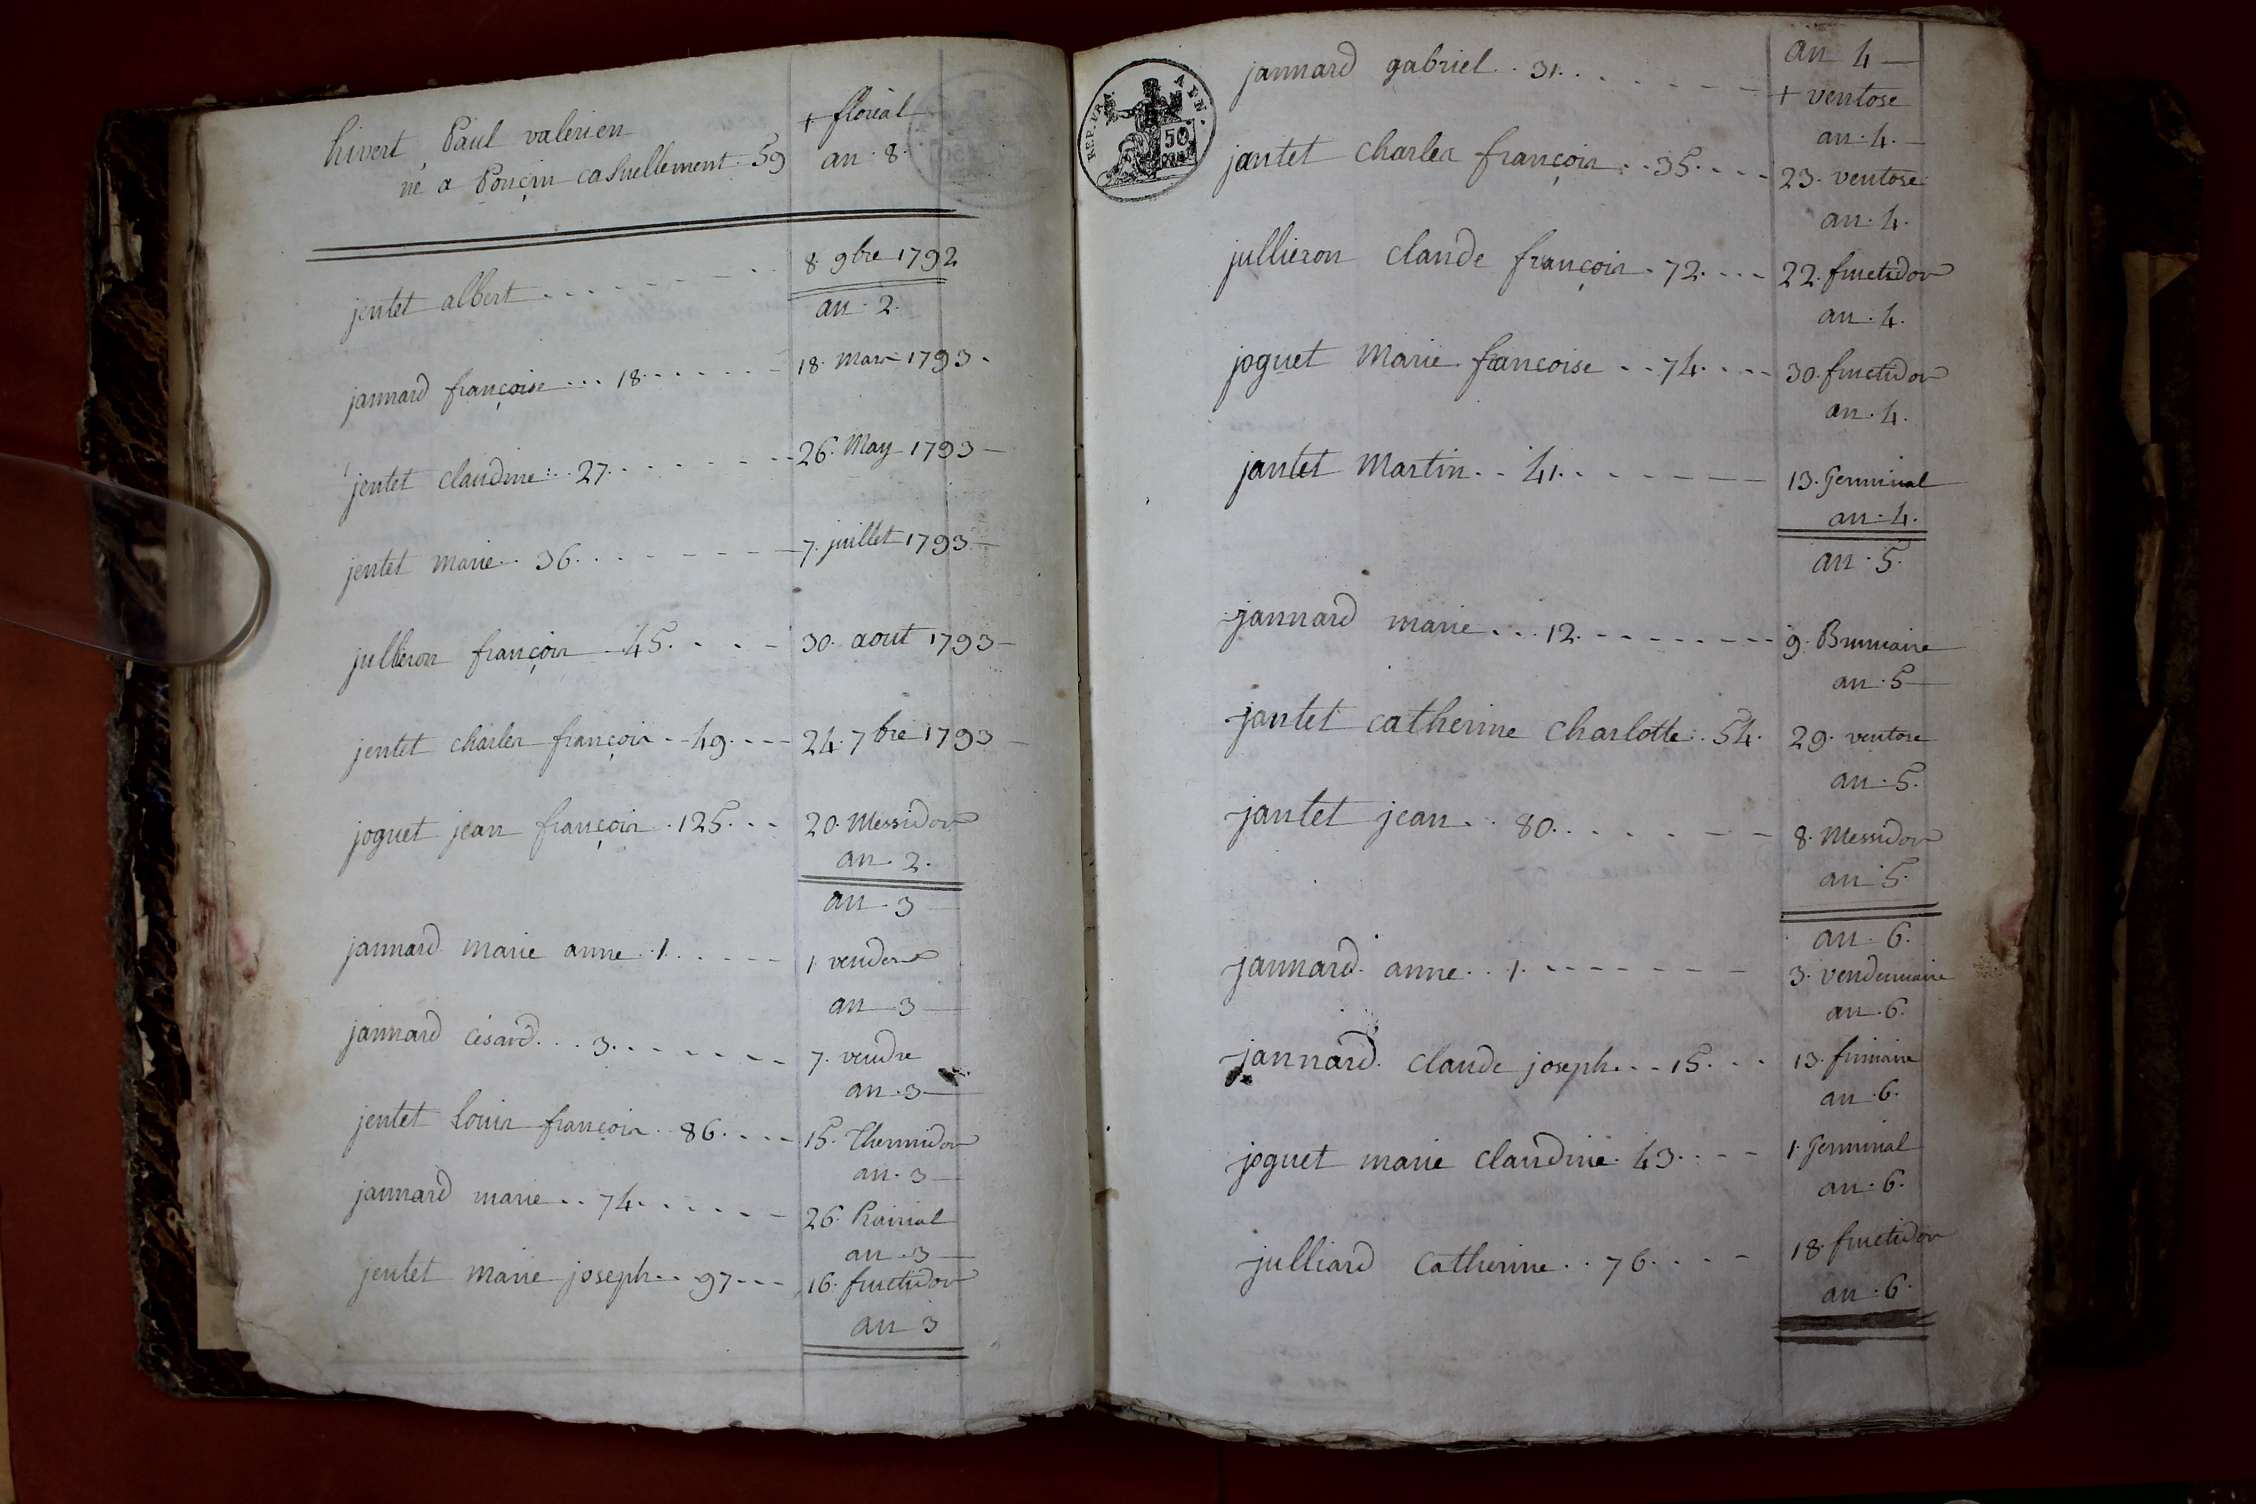 hivert Paul valerien
né a Ponçin casuellement . 59
+ floréal
an . 8 .
8 9bre 1792
jentet albert
an . 2 .
jannard françoise ... 18 18 . Mars 1793 .
jentet claudine . 27 . 26 . May 1793
jentet marie .. 36 . 7 . juillet 1793
jullieron françois 45 . 30 . aout 1793
jentet charles françois .. 49 . 24 . 7bre 1793
joguet jean françois . 125 . 20 . Messidor
an . 2 .
an . 3
jannard marie anne . 1 . 1 vendre
an 3
jannard césard ... 3 . 7 . vendre
an . 3
jentet louis françois . 86 . 15 . Thermidor
an . 3
jannard marie .. 74 . 26 Prairial
an . 3
jentet marie joseph .. 97 16 . fructidor
an 3
REP. FRA. A FN.
50
an 4
jannard gabriel .. 31 . + ventose
an . 4 .
jantet charles françois .. 35 . 23 . ventose
an . 4 .
jullieron claude françois . 72 . 22 . fructidor
an . 4 .
joguet Marie francoise .. 74 . 30 . fructidor
an . 4 .
jantet Martin .. 41 . 13 . Germinal
an . 4 .
an . 5 .
jannard marie ... 12 . 9 . Brumaire
an . 5
jantet catherine charlotte . 54 . 29 . ventose
an . 5 .
jantet jean .. 80 . 8 . Messidor
an 5 .
an . 6 .
jannard . anne .. 1 . 3 . vendemiaire
an . 6 .
jannard . claude joseph ... 15 . 13 . frimaire
an . 6 .
joguet marie claudine . 43 . 1 Germinal
an . 6 .
julliard catherine .. 76 . 18 . fructidor
an . 6 .